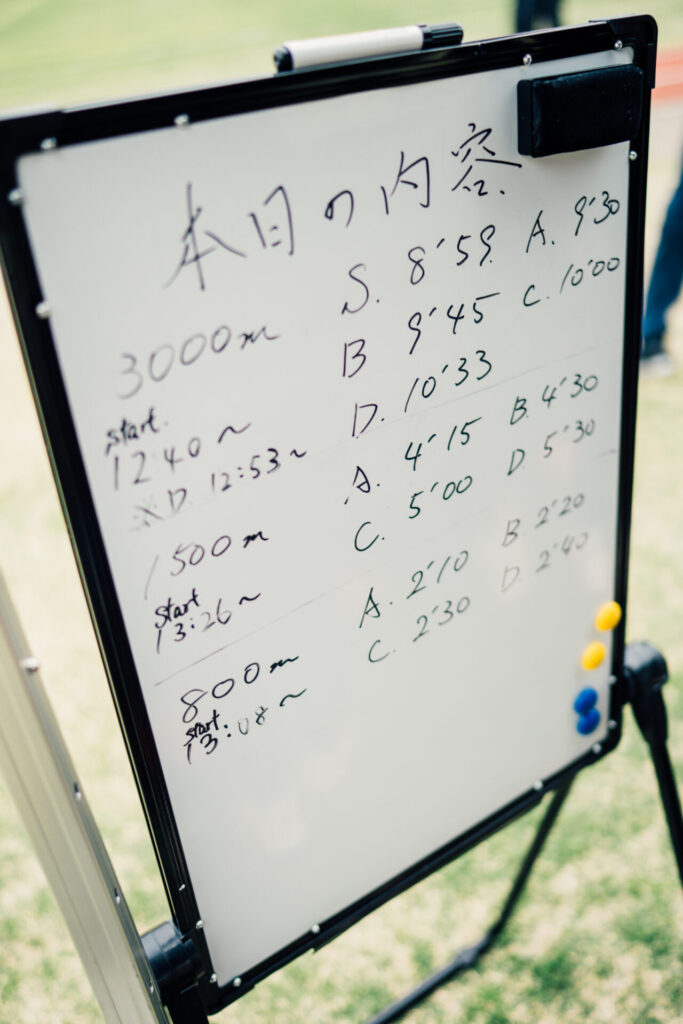 本日の内容
3000m
S. 8'59 A. 9'30
B 9'45 C. 10'00
D. 10'33
start.
12:40~
※D. 12:53~
1500m
A. 4'15 B. 4'30
C. 5'00 D. 5'30
start
13:26~
800m
A. 2'10 B. 2'20
C. 2'30 D. 2'40
start
13:08~